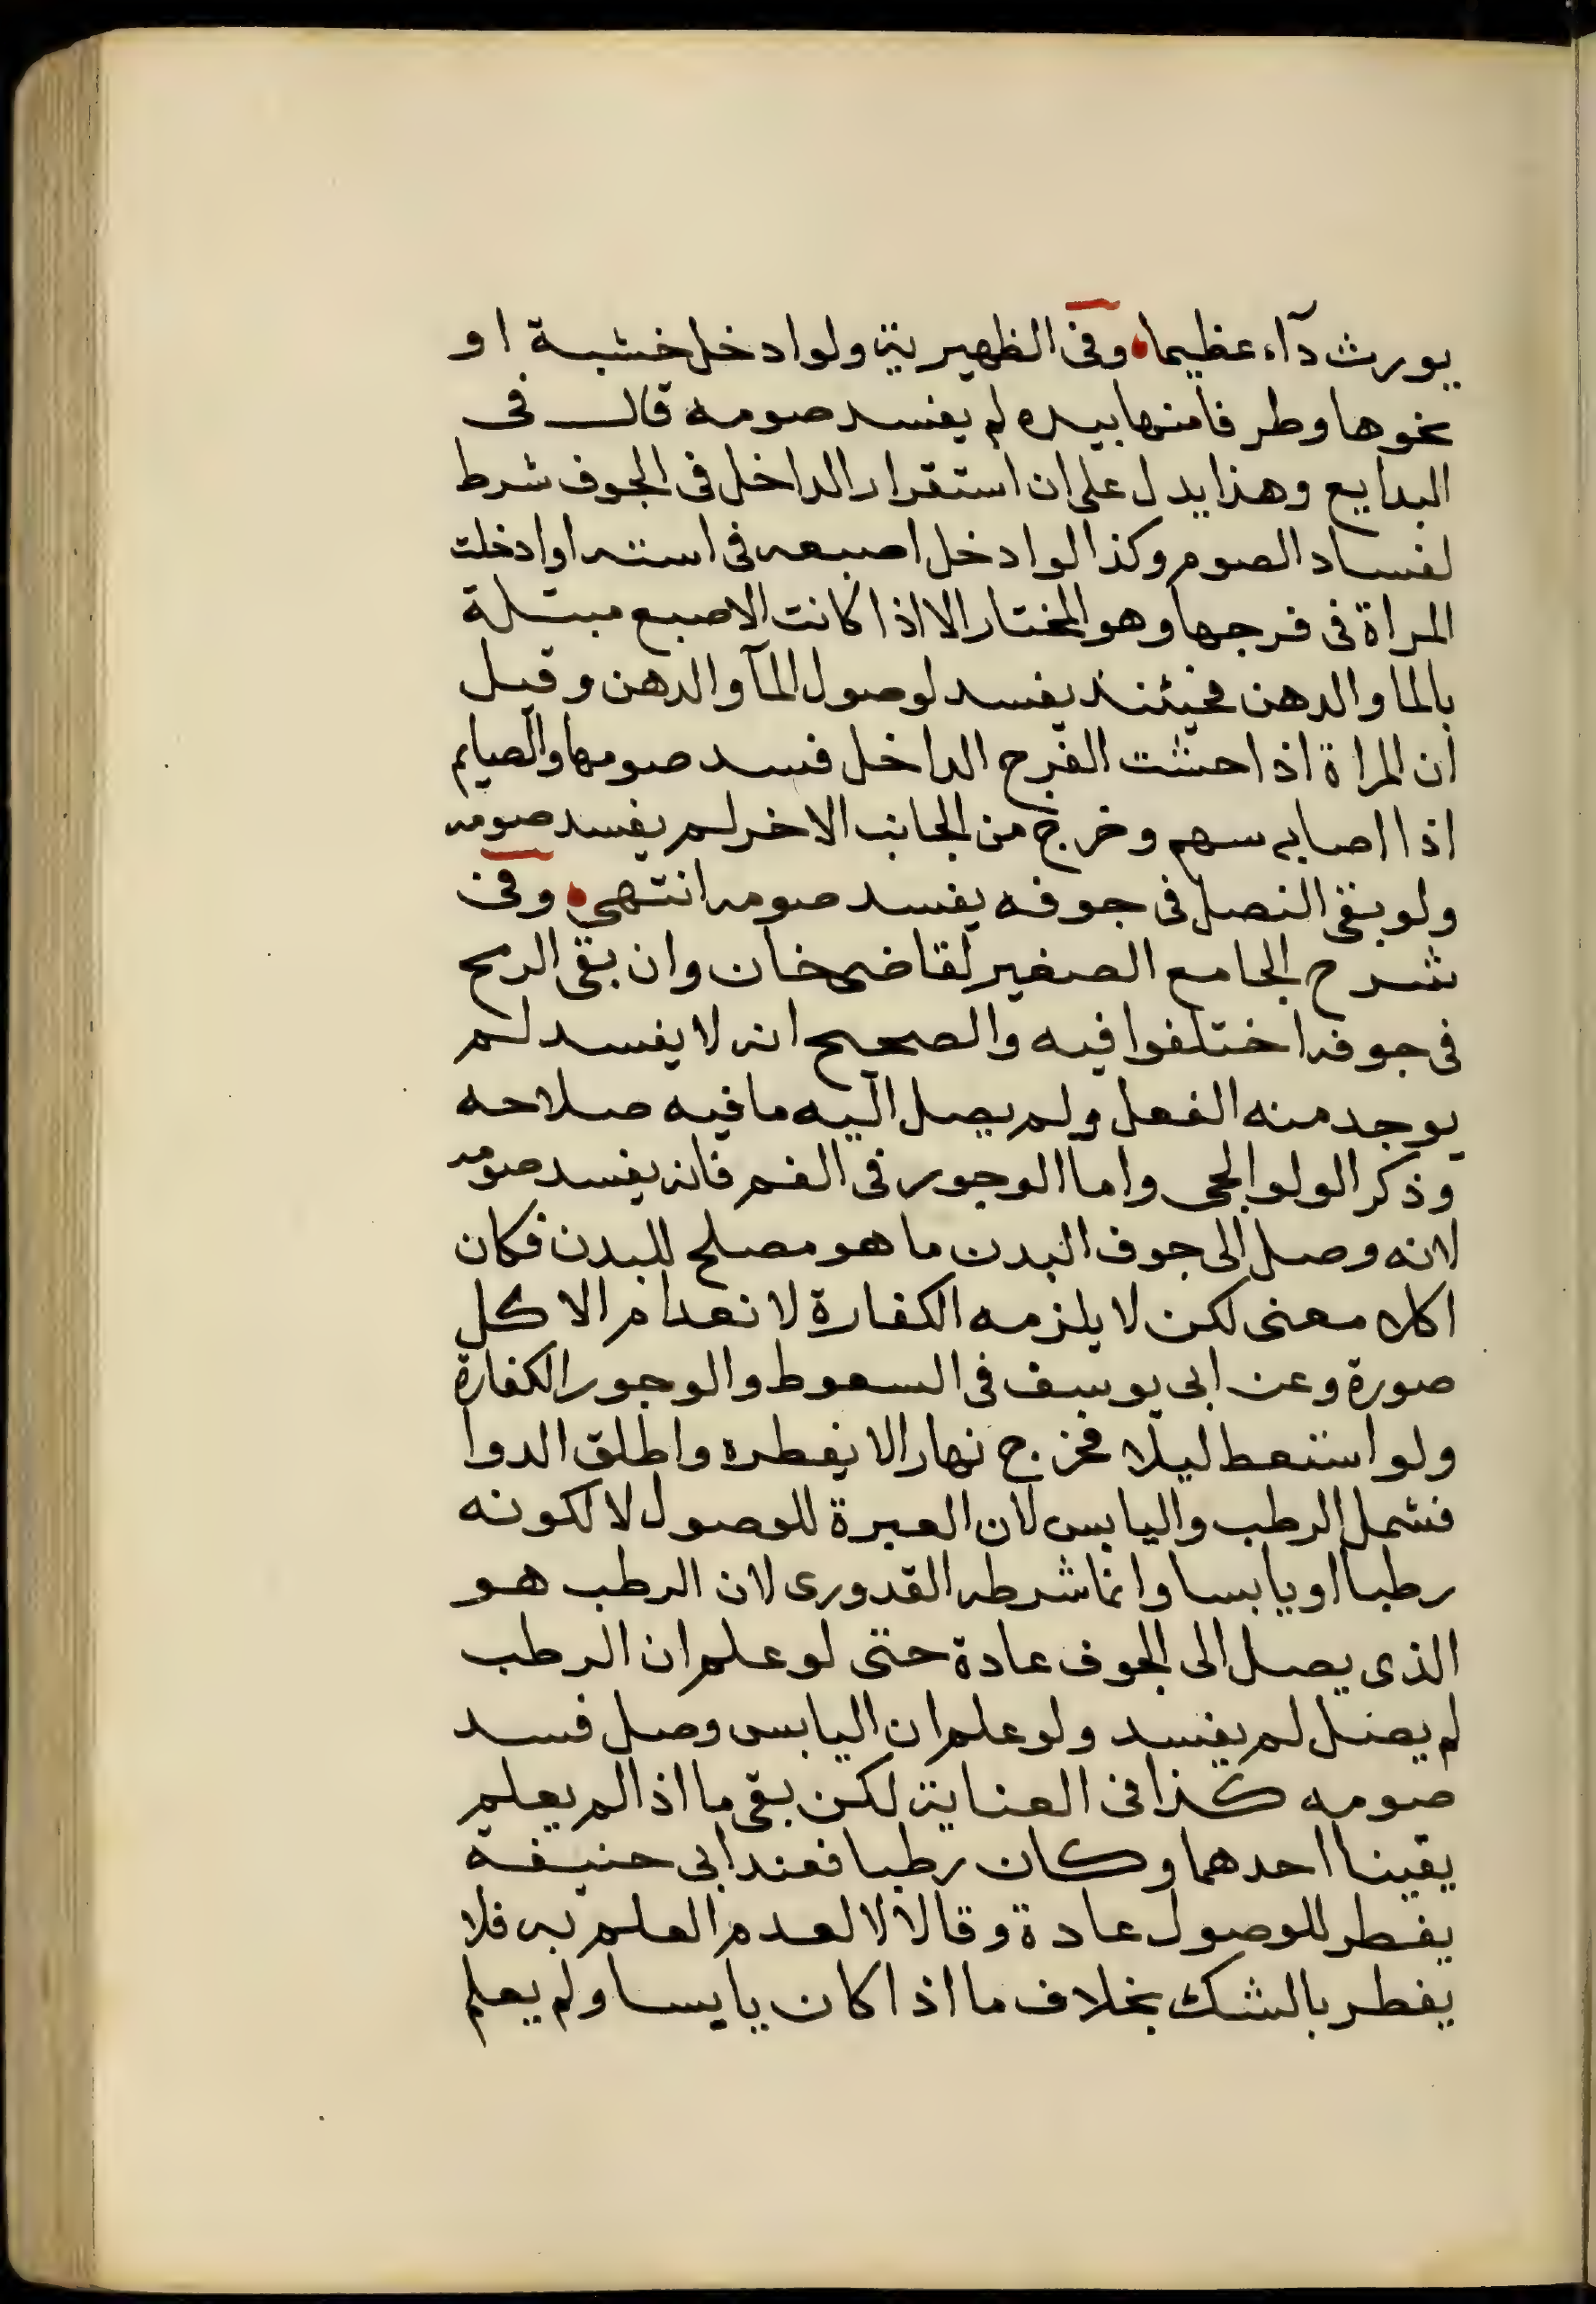 يورث دآء عظيما وفى الظهيرية ولو ادخل خشبة او
نحوها وطرفا منها بيده لم يفسد صومه قال فى
البدايع وهذا يدل على ان استقرار الداخل فى الجوف شرط
لفساد الصوم وكذا لو ادخل اصبعه فى استه او ادخلت
المراة فى فرجها وهو المختار الا اذا كانت الاصبع مبتلة
بالما والدهن فحيئنذ يفسد لوصول المآ والدهن وقيل
ان المراة اذا احتشت الفرج الداخل فسد صومها والصايم
اذا اصابه سهم وخرج من الجانب الاخر لم يفسد صومه
ولو بقى النصل فى جوفه يفسد صومه انتهى وفى
شرح الجامع الصغير لقاضىخان وان بقى الرمح
فى جوفه اختلفوا فيه والصحيح انه لا يفسد لم
يوجد منه الفعل ولم يصل اليه ما فيه صلاحه
وذكر الولوالجى واما الوجور فى الفم فانه يفسد صومه
لانه وصل الى جوف البدن ما هو مصلح للبدن فكان
اكلا معنى لكن لا يلزمه الكفارة لانعدام الاكل
صورة وعن ابى يوسف فى السعوط والوجور الكفارة
ولو استعط ليلا فخرج نهارا لا يفطره واطلق الدوا
فشمل الرطب واليابس لان العبرة للوصول لا لكونه
رطبا او يابسا وانما شرطه القدورى لان الرطب هو
الذى يصل الى الجوف عادة حتى لو علم ان الرطب
لم يصل لم يفسد ولو علم ان اليابس وصل فسد
صومه كذا فى العناية لكن بقى ما اذا لم يعلم
يقينا احدهما وكان رطبا فعند ابى حنيفة
يفطر للوصول عادة وقالا لا لعدم العلم به فلا
يفطر بالشك بخلاف ما اذا كان يابسا ولم يعلم